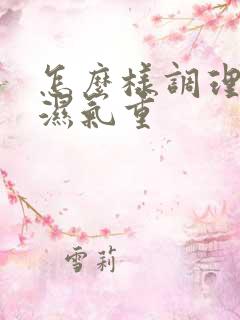 怎麼樣調理
濕氣重
雪莉